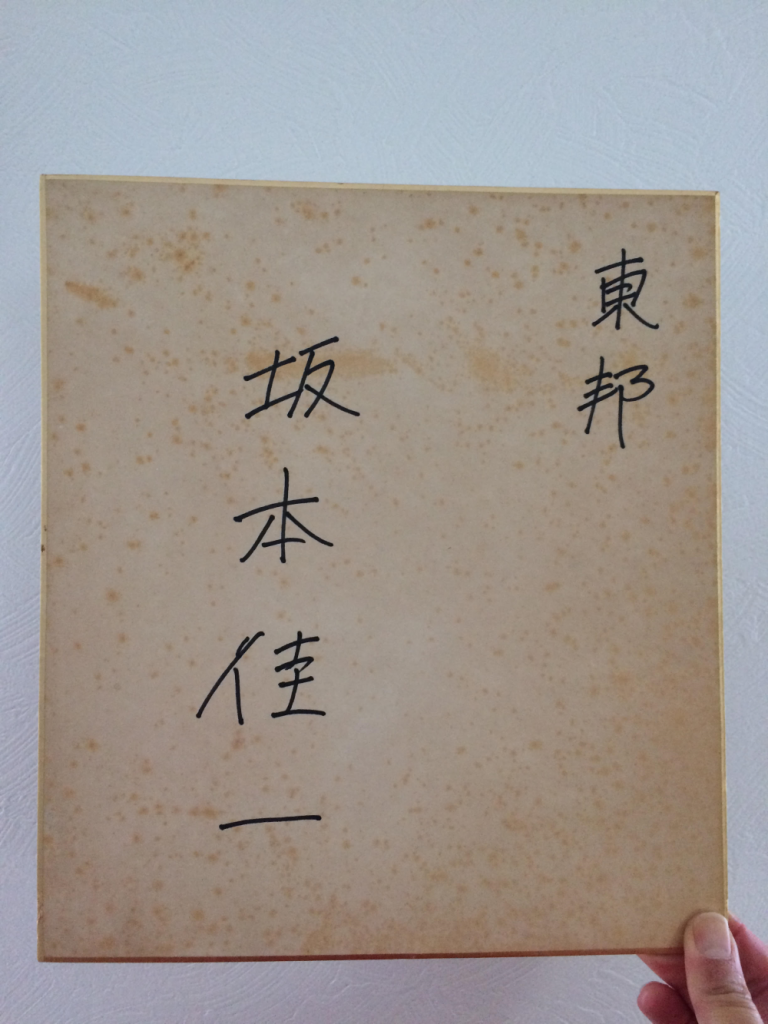 東邦
坂本佳一